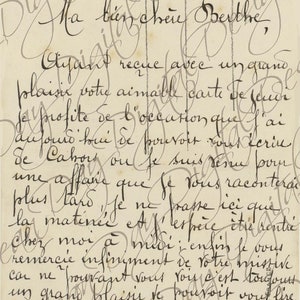 Ma bien chère Berthe,
Ayant reçue avec un grand
plaisir votre aimable carte de jeudi
je profite de l'occasion que j'ai
aujourd'hui de pouvoir vous écrire
de Cahors ou je suis venu pour
une affaire que je vous raconterai
plus tard, je ne passe ici que
la matinée et j'espère être rentré
chez moi à midi; enfin je vous
remercie infiniment de votre missive
car ne pouvant vous voir c'est toujours
un grand plaisir de pouvoir